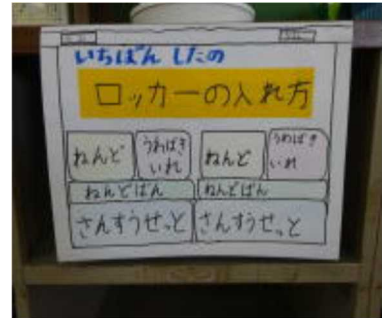 いちばん したの
ロッカーの入れ方
ねんど うわばきいれ ねんど うわばきいれ
ねんどばん ねんどばん
さんすうせっと さんすうせっと